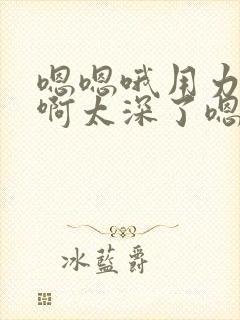 嗯嗯哦用力
啊太深了嗯
冰蓝爵